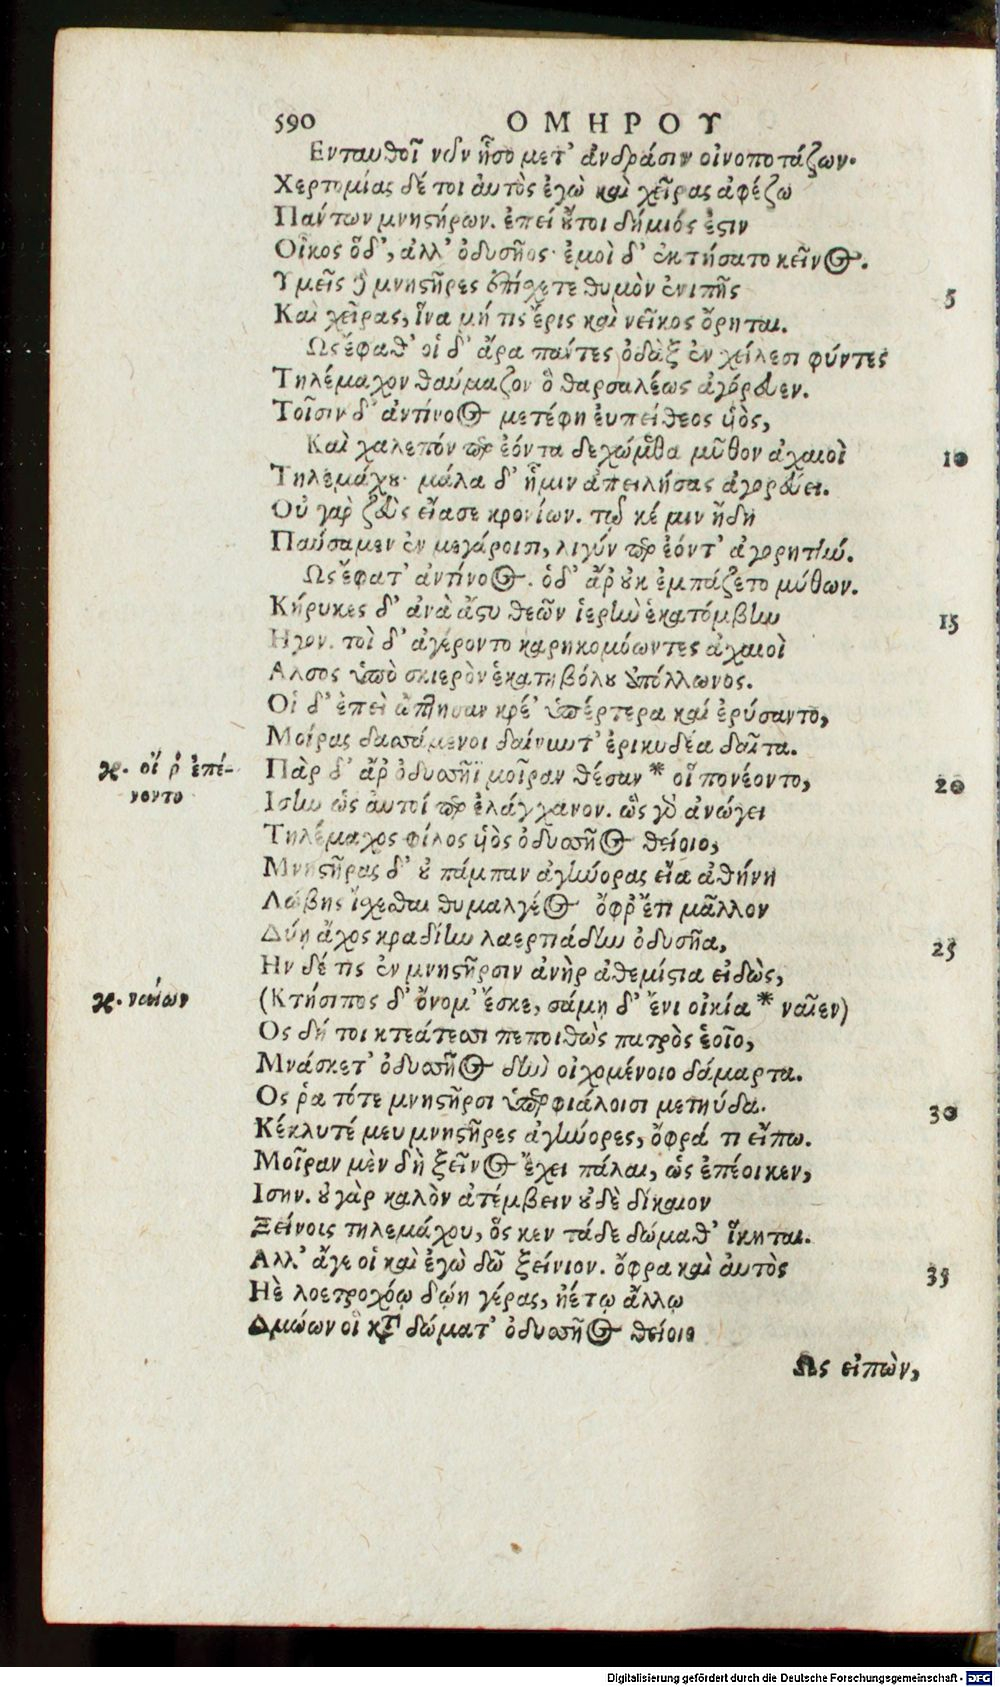 590 ΟΜΗΡΟΥ
Ενταυθοῖ νῦν ἧσο μετ' ἀνδράσιν οἰνοποτάζων·
Χερτομίας δέ τοι ἀυτὸς ἐγὼ καὶ χεῖρας ἀφέζω
Πάντων μνηστήρων. ἐπεί οὔτοι δήμιός ἐστιν
Οἶκος ὅδ', ἀλλ' ὀδυσῆος· ἐμοὶ δ' ἐκτήσατο κεῖνος.
Υμεῖς δὲ μνηστῆρες ἐπίσχετε θυμὸν ἐνιπῆς 5
Καὶ χεῖρας, ἵνα μή τις ἔρις καὶ νεῖκος ὄρηται.
Ως ἔφαθ' οἱ δ' ἄρα πάντες ὀδὰξ ἐν χείλεσι φύντες
Τηλέμαχον θαύμαζον ὃ θαρσαλέως ἀγόρευεν.
Τοῖσιν δ' ἀντίνοος μετέφη ἐυπείθεος υἱὸς,
Καὶ χαλεπόν περ ἐόντα δεχώμεθα μῦθον ἀχαιοὶ 10
Τηλεμάχου· μάλα δ' ἧμιν ἀπειλήσας ἀγορεύει.
Οὐ γὰρ ζεὺς εἴασε κρονίων. τῷ κέ μιν ἤδη
Παύσαμεν ἐν μεγάροισι, λιγύν περ ἐόντ' ἀγορητήν.
Ως ἔφατ' ἀντίνοος. ὁδ' ἄρ' οὐκ ἐμπάζετο μύθων.
Κήρυκες δ' ἀνὰ ἄστυ θεῶν ἱερὴν ἑκατόμβην 15
Ηγον. τοὶ δ' ἀγέροντο καρηκομόωντες ἀχαιοὶ
Αλσος ὑπὸ σκιερὸν ἑκατηβόλου ἀπόλλωνος.
Οἱ δ' ἐπεὶ ὤπτησαν κρέ' ὑπέρτερα καὶ ἐρύσαντο,
Μοίρας δασσάμενοι δαίνυντ' ἐρικυδέα δαῖτα.
γρ. οἵ ῥ' ἐπέ-
νοντο
Πὰρ δ' ἄρ' ὀδυσσῆϊ μοῖραν θέσαν * οἳ πονέοντο, 20
Ισην ὡς ἀυτοί περ ἐλάγχανον. ὣς γὰρ ἀνώγει
Τηλέμαχος φίλος υἱὸς ὀδυσσῆος θείοιο,
Μνηστῆρας δ' οὐ πάμπαν ἀγήνορας εἴα ἀθήνη
Λώβης ἴσχεσθαι θυμαλγέος ὄφρ' ἔτι μᾶλλον
Δύη ἄχος κραδίην λαερτιάδην ὀδυσῆα, 25
Ην δέ τις ἐν μνηστῆρσιν ἀνὴρ ἀθεμίστια εἰδὼς,
γρ. ναίων
(Κτήσιπος δ' ὄνομ' ἔσκε, σάμῃ δ' ἔνι οἰκία * ναῖεν)
Ος δή τοι κτεάτεσσι πεποιθὼς πατρὸς ἑοῖο,
Μνάσκετ' ὀδυσσῆος δὴν οἰχομένοιο δάμαρτα.
Ος ῥα τότε μνηστῆρσι ὑπερφιάλοισι μετηύδα. 30
Κέκλυτέ μευ μνηστῆρες ἀγήνορες, ὄφρά τι εἴπω.
Μοῖραν μὲν δὴ ξεῖνος ἔχει πάλαι, ὡς ἐπέοικεν,
Ισην. οὐ γὰρ καλὸν ἀτέμβειν οὐδὲ δίκαιον
Ξείνοις τηλεμάχου, ὅς κεν τάδε δώμαθ' ἵκηται.
Αλλ' ἄγε οἱ καὶ ἐγὼ δῶ ξείνιον. ὄφρα καὶ ἀυτὸς 35
Ηὲ λοετροχόῳ δώῃ γέρας, ἠέ τῳ ἄλλῳ
Δμώων οἳ κατὰ δώματ' ὀδυσσῆος θείοιο
Ως εἰπὼν,
Digitalisierung gefördert durch die Deutsche Forschungsgemeinschaft - DFG